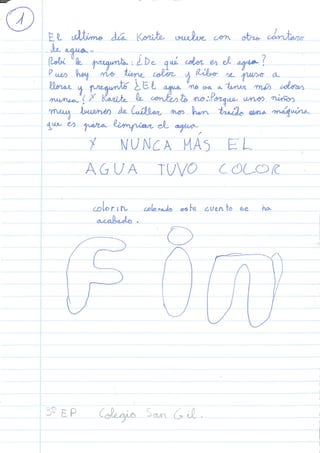 1
El último día Karite vuelve con otro cántaro
de agua.
Robi le pregunta: ¿De qué color es el agua?
Pues hoy no tiene color y Ribo se puso a
llorar y preguntó ¿El agua no va a tener más colores
nunca? Y Karite le contesto no: Porque unos niños
muy buenos de Cuéllar nos han traído una máquina
que es para limpiar el agua.
Y NUNCA MÁS EL
AGUA TUVO COLOR
colorin colorado este cuento se ha
acabado.
Fin
5º EP Colegio San Gil.